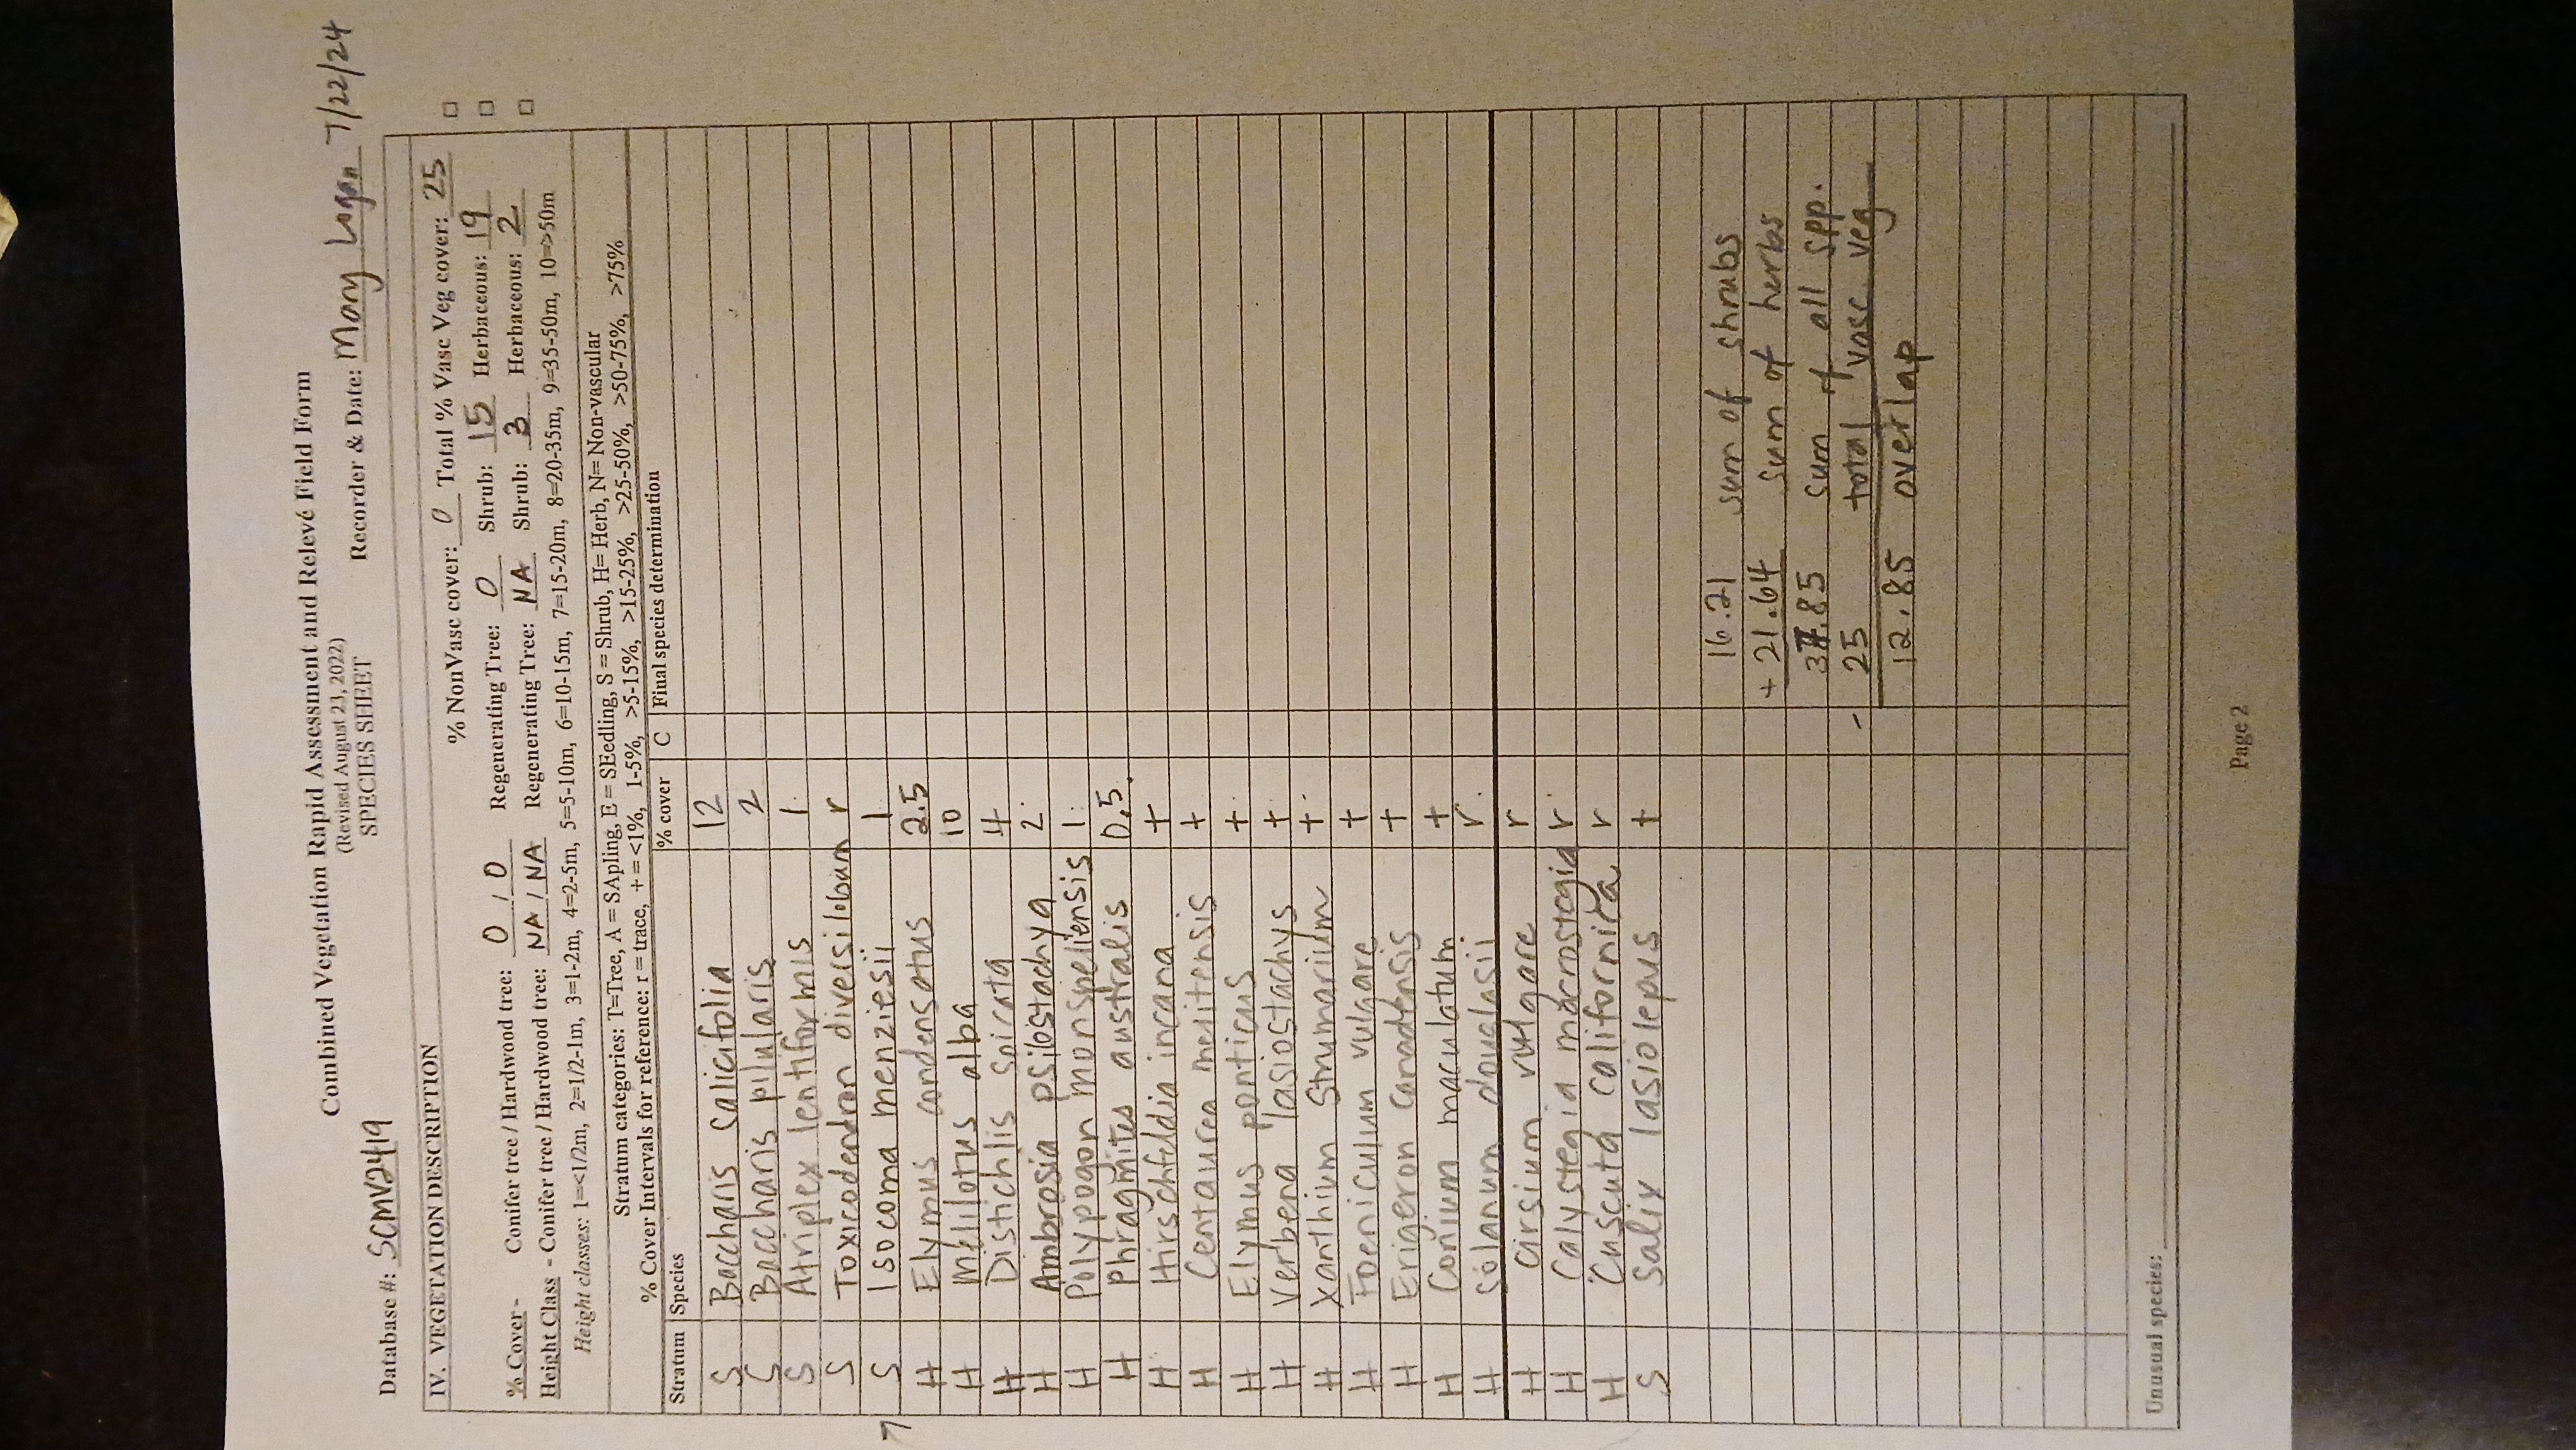 Combined Vegetation Rapid Assessment and Relevé Field Form
(Revised August 23, 2022)
SPECIES SHEET
Database #: SCMV2419 Recorder & Date: Mary Logan 7/22/24
IV. VEGETATION DESCRIPTION
% NonVasc cover: 0 Total % Vasc Veg cover: 25
% Cover - Conifer tree / Hardwood tree: 0 / 0 Regenerating Tree: 0 Shrub: 15 Herbaceous: 19
Height Class - Conifer tree / Hardwood tree: NA / NA Regenerating Tree: NA Shrub: 3 Herbaceous: 2
Height classes: 1=<1/2m, 2=1/2-1m, 3=1-2m, 4=2-5m, 5=5-10m, 6=10-15m, 7=15-20m, 8=20-35m, 9=35-50m, 10=>50m
Stratum categories: T=Tree, A = SApling, E = SEedling, S = Shrub, H= Herb, N= Non-vascular
% Cover Intervals for reference: r = trace, + = <1%, 1-5%, >5-15%, >15-25%, >25-50%, >50-75%, >75%
Stratum Species % cover C Final species determination
S Baccharis salicifolia 12
S Baccharis pilularis 2
S Atriplex lentiformis 1
S Toxicodendron diversilobum r
S Isocoma menziesii 1
H Elymus condensatus 2.5
H Melilotus alba 10
H Distichlis spicata 4
H Ambrosia psilostachya 2
H Polypogon monspeliensis 1
H Phragmites australis 0.5
H Hirschfeldia incana +
H Centaurea melitensis +
H Elymus ponticus +
H Verbena lasiostachys +
H Xanthium strumarium +
H Foeniculum vulgare +
H Erigeron canadensis +
H Conium maculatum +
H Solanum douglasii r
H Cirsium vulgare r
H Calystegia macrostegia r
H Cuscuta californica r
S Salix lasiolepus +
16.21 sum of shrubs
+ 21.64 sum of herbs
37.85 sum of all spp.
- 25 total vasc veg
12.85 overlap
Unusual species:
Page 2